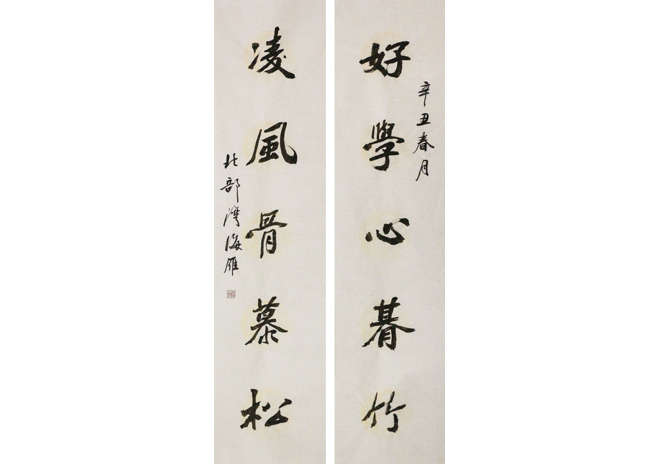 好學心朞竹
辛丑春月
凌風骨慕松
北部灣海雁